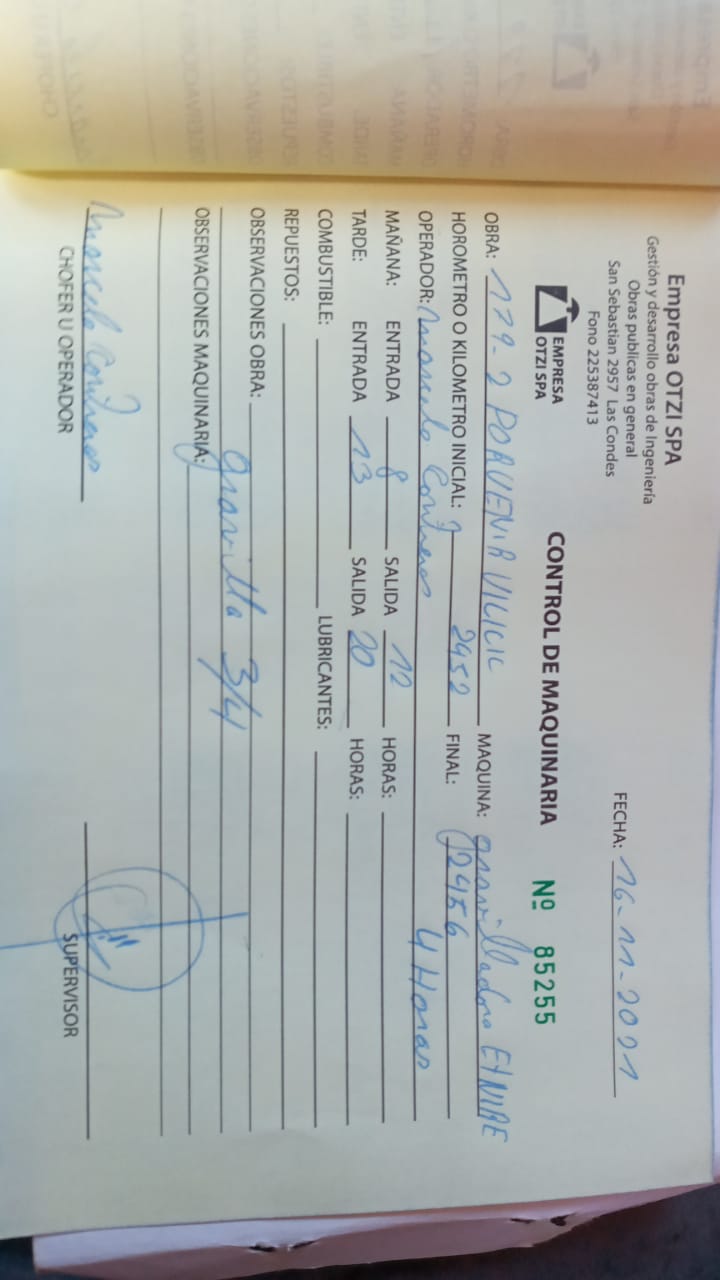 Empresa OTZI SPA
Gestión y desarrollo obras de Ingeniería
Obras publicas en general
San Sebastian 2957 Las Condes
Fono 225387413
FECHA: 16-11-2021
EMPRESA
OTZI SPA
CONTROL DE MAQUINARIA Nº 85255
OBRA: 179-2 PORVENIR MAQUINA: gravilladora ETNIRE
HOROMETRO O KILOMETRO INICIAL: 2452 FINAL: 2456
OPERADOR: Marcelo Contreras 4 Horas
MAÑANA: ENTRADA 8 SALIDA 12 HORAS:
TARDE: ENTRADA 13 SALIDA 20 HORAS:
COMBUSTIBLE: LUBRICANTES:
REPUESTOS:
OBSERVACIONES OBRA:
gravilla 3/4
OBSERVACIONES MAQUINARIA:
Marcelo Contreras
CHOFER U OPERADOR SUPERVISOR